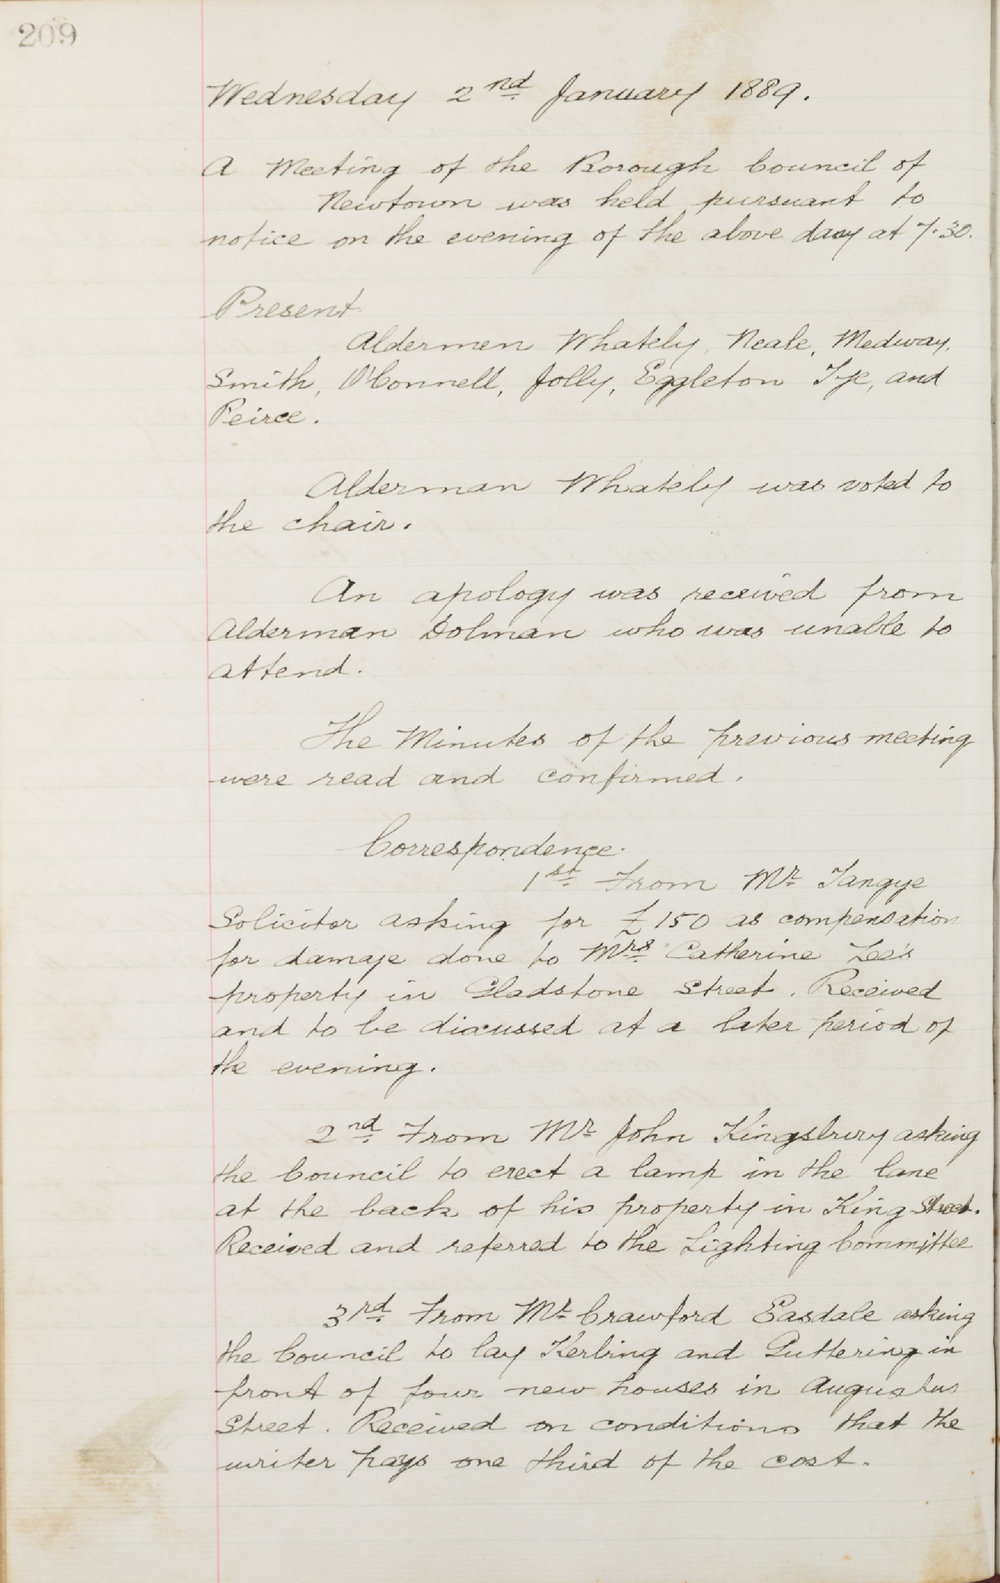 209
Wednesday 2nd January 1889.
A Meeting of the Borough Council of
Newtown was held pursuant to
notice on the evening of the above day at 7.30.
Present
Aldermen Whately, Neale, Medway,
Smith, O'Connell, Jolly, Eggleton Tye, and
Peirce.
Alderman Whately was voted to
the chair.
An apology was received from
Alderman Dolman who was unable to
attend.
The Minutes of the previous meeting
were read and confirmed.
Correspondence.
1st From Mr Tangye
Solicitor asking for £150 as compensation
for damage done to Mrs Catherine Lee's
property in Gladstone Street. Received
and to be discussed at a later period of
the evening.
2nd From Mr John Kingsbury asking
the Council to erect a lamp in the lane
at the back of his property in King Street.
Received and referred to the Lighting Committee
3rd From Mr Crawford Easdale asking
the Council to lay Kerbing and Guttering in
front of four new houses in Augustus
Street. Received on conditions that the
writer pays one third of the cost.